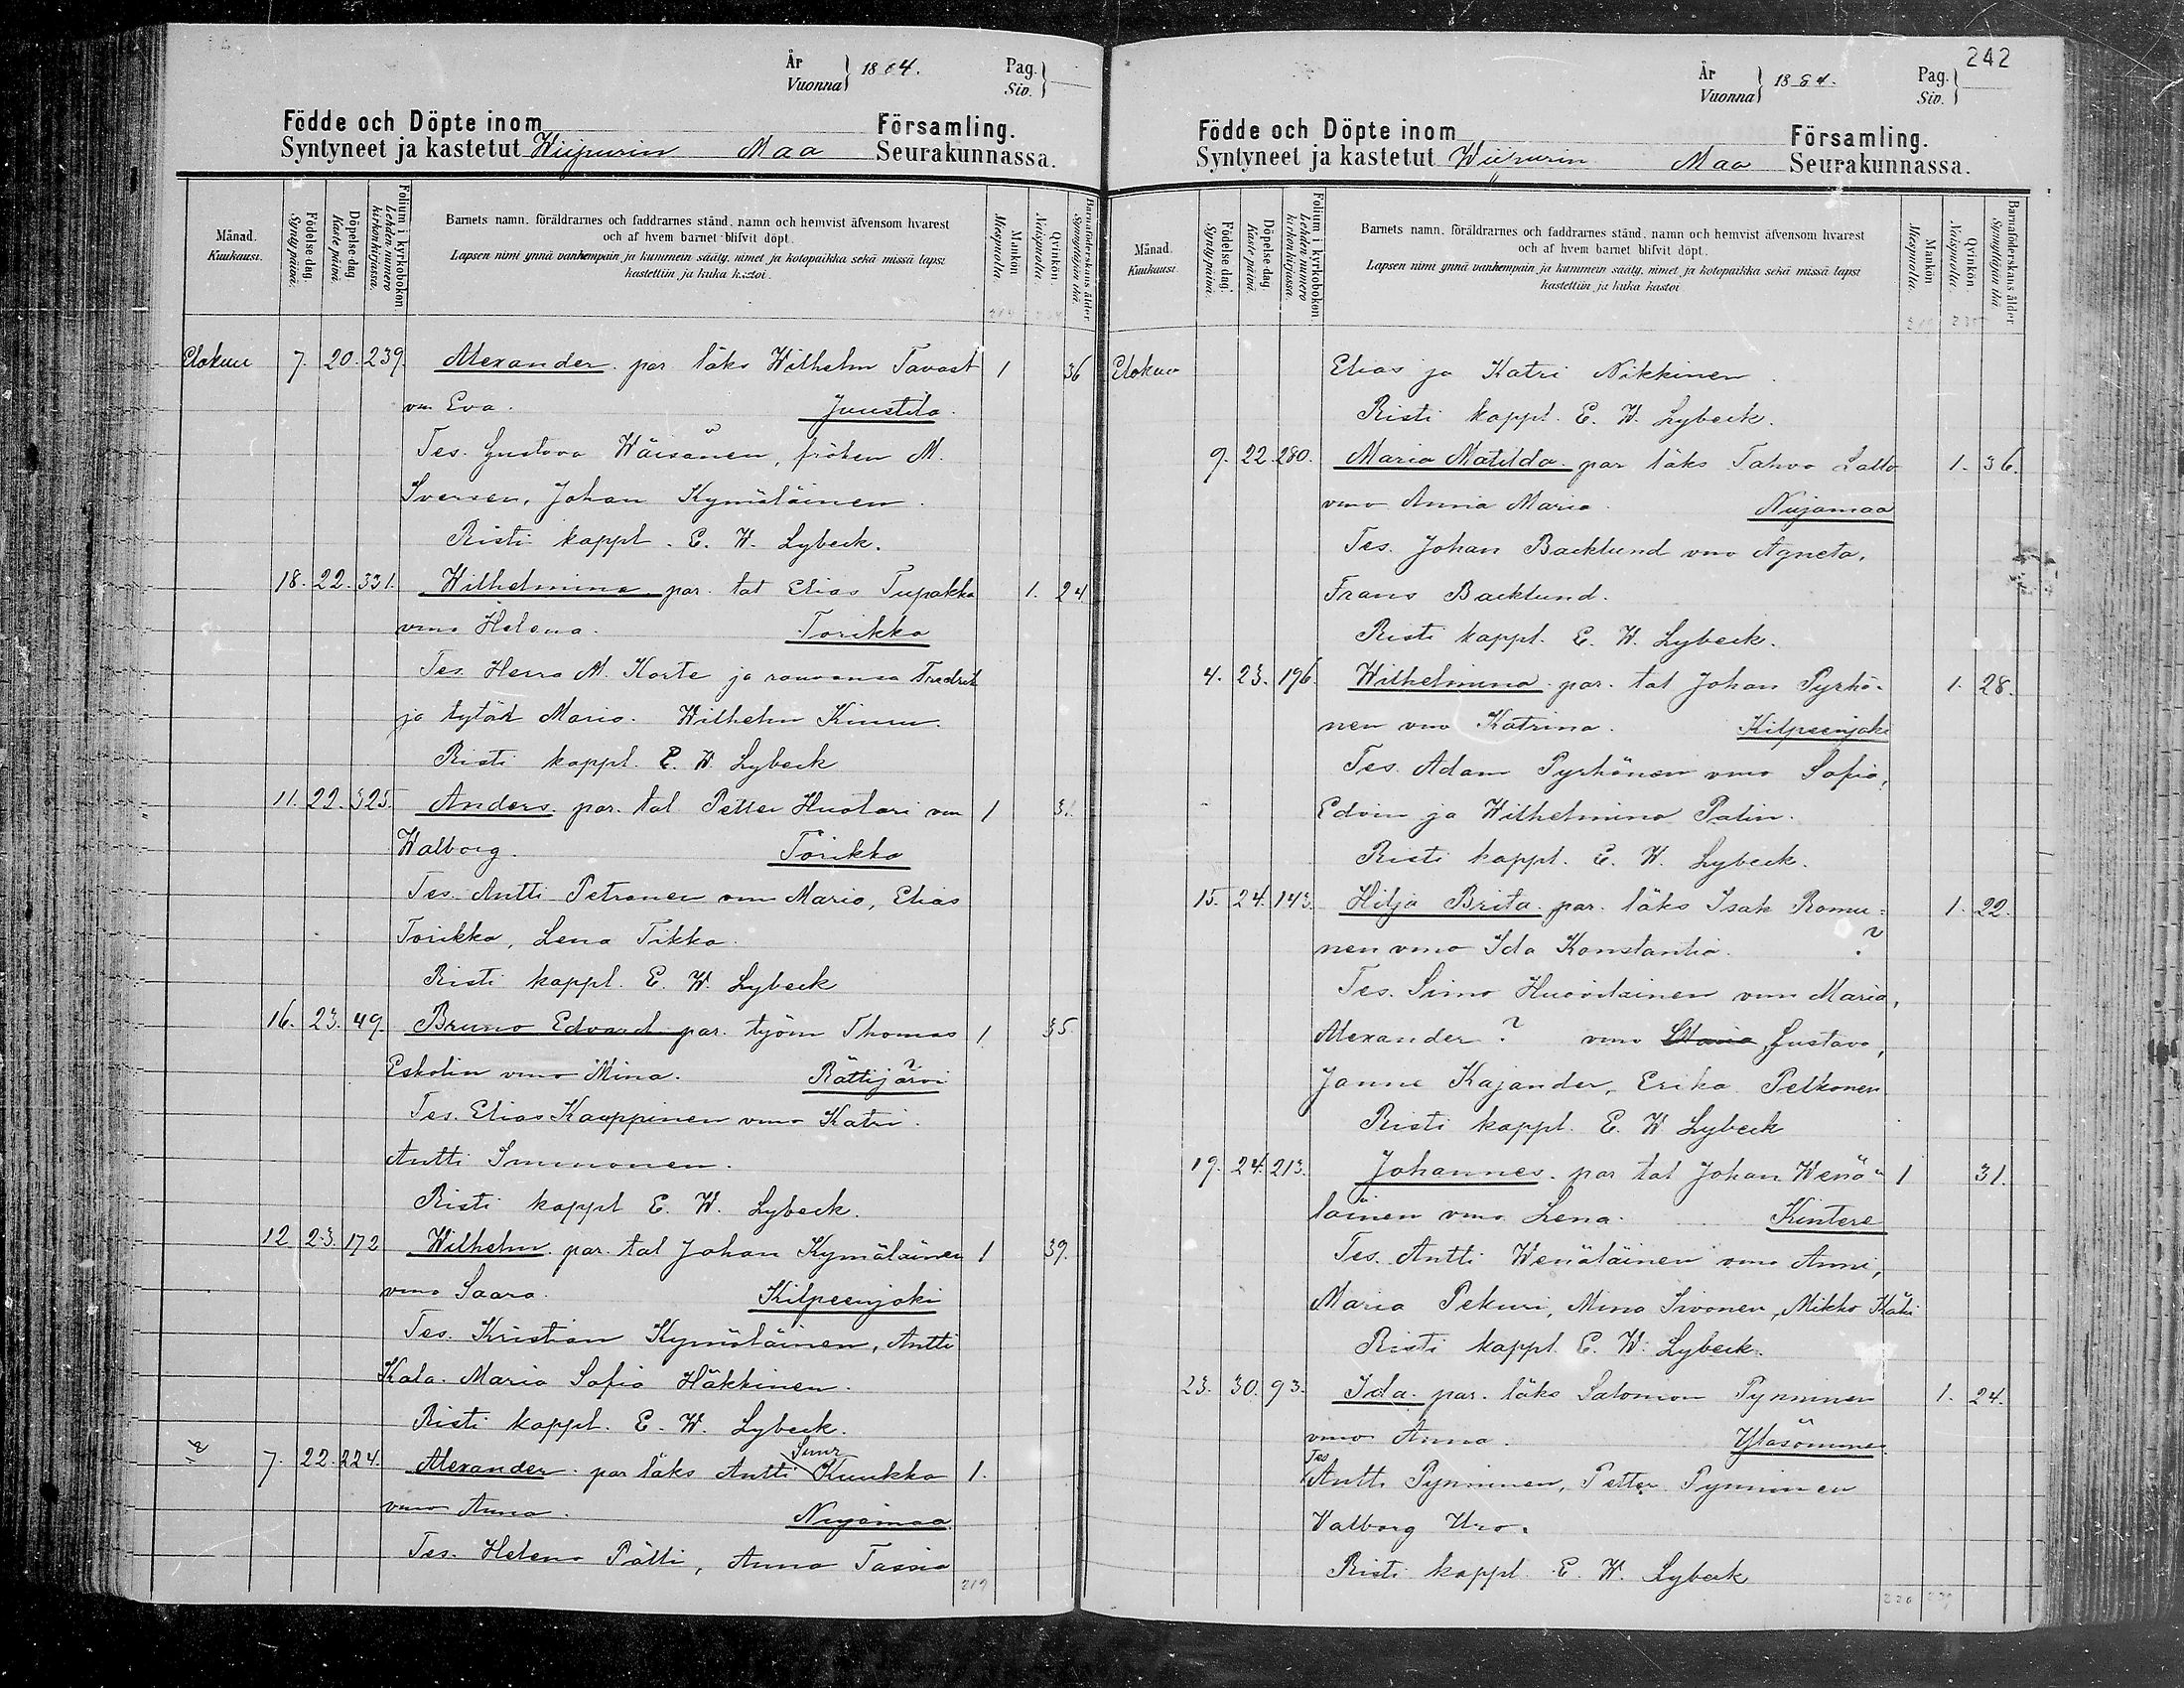 År
Vuonna } 1864.
Pag.
Siv. }
Födde och Döpte inom Församling.
Syntyneet ja kastetut Wiipurin Maa Seurakunnassa.
Månad.
Kuukausi.
Födelse dag.
Syntypäivä.
Döpelse dag.
Kaste päivä.
Folium i kyrkoboken.
Lehden numero kirkonkirjassa.
Barnets namn, föräldrarnes och faddrarnes stånd, namn och hemvist äfvensom hvarest
och af hvem barnet blifvit döpt.
Lapsen nimi ynnä vanhempain ja kummein sääty, nimet ja kotopaikka sekä missä lapsi
kastettiin ja kuka kastoi.
Mankön.
Miespuolta.
Qvinkön.
Naispuolta.
Barnaföderskans ålder
Synnyttäjän ikä.
Elokuu 7. 20. 239. Alexander par. läks Wilhelm Tavast 1 36
vm Eva. Juustila.
Tes. Gustava Wäisänen, fröken M.
Iversen, Johan Kymäläinen.
Risti kappl. E. W. Lybeck.
18. 22. 331. Wilhelmina par. tal Elias Tupakka 1. 24
vmo Helena. Torikka
Tes. Herra M. Korte ja rouvansa Fredrik
ja tytär Maria. Wilhelm Kinnu.
Risti kappl. E. W. Lybeck
11. 22. 325. Anders par. tal Petter Huotari vm 1 3.
Walborg. Torikka
Tes. Antti Petronen vm Maria, Elias
Torikka, Lena Tikka.
Risti kappl. E. W. Lybeck
16. 23. 49. Bruno Edvard par. työm Thomas 1 35.
Eskolin vmo Mina. Rättijärvi
Tes. Elias Kauppinen vmo Katri.
Antti Immonen.
Risti kappl E. W. Lybeck.
12 23. 172 Wilhelm par. tal Johan Kymäläinen 1 39.
vmo Saara. Kilpeenjoki
Tes. Kristian Kymäläinen, Antti
Kala. Maria Sofia Häkkinen.
Risti kappl. E. W. Lybeck.
Suur
7. 22. 224. Alexander par läks Antti Kuukka 1.
vmo Anna. Nuijamaa
Tes. Helena Pälli, Anna Tassia
219
242
År
Vuonna } 1864.
Pag.
Siv. }
Födde och Döpte inom Församling.
Syntyneet ja kastetut Wiipurin Maa Seurakunnassa.
Månad.
Kuukausi.
Födelse dag.
Syntypäivä.
Döpelse dag.
Kaste päivä.
Folium i kyrkoboken.
Lehden numero kirkonkirjassa.
Barnets namn, föräldrarnes och faddrarnes stånd, namn och hemvist äfvensom hvarest
och af hvem barnet blifvit döpt.
Lapsen nimi ynnä vanhempain ja kummein sääty, nimet ja kotopaikka sekä missä lapsi
kastettiin ja kuka kastoi
Mankön
Miespuolta.
Qvinkön
Naispuolta.
Barnaföderskans ålder
Synnyttäjän ikä
Elokuu Elias ja Katri Nikkinen.
Risti kappl. E. W. Lybeck.
9. 22. 280. Maria Matilda par läks Tahvo Latto 1. 36.
vmo Anna Maria. Nuijamaa
Tes. Johan Backlund vmo Agneta,
Frans Backlund.
Risti kappl. E. W. Lybeck.
4. 23. 196. Wilhelmina par. tal Johan Pyrhö- 1. 28.
nen vmo Katrina. Kilpeenjoki
Tes. Adam Pyrhönen vmo Sofia,
Edvin ja Wilhelmina Palin.
Risti kappl. E. W. Lybeck.
15. 24. 143. Hilja Brita par. läks Isak Romu- 1. 22.
nen vmo Ida Konstantia. ?
Tes. Simo Huovilainen vmo Maria,
Alexander ? vmo Maria Gustava,
Janne Kajander, Erika Pelkonen
Risti kappl. E. W. Lybeck
19. 24. 213. Johannes par tal Johan Wenä- 1 31.
läinen vmo Lena. Kintere
Tes. Antti Wenäläinen vmo Anni,
Maria Pekuri, Mina Sivonen, Mikko Käki
Risti kappl. E. W. Lybeck.
23. 30. 93. Ida par. läks Salomon Pynninen 1. 24.
vmo Anna. Yläsomme.
Tes
Antti Pynninen, Petter Pynninen
Valborg Uro.
Risti kappl. E. W. Lybeck